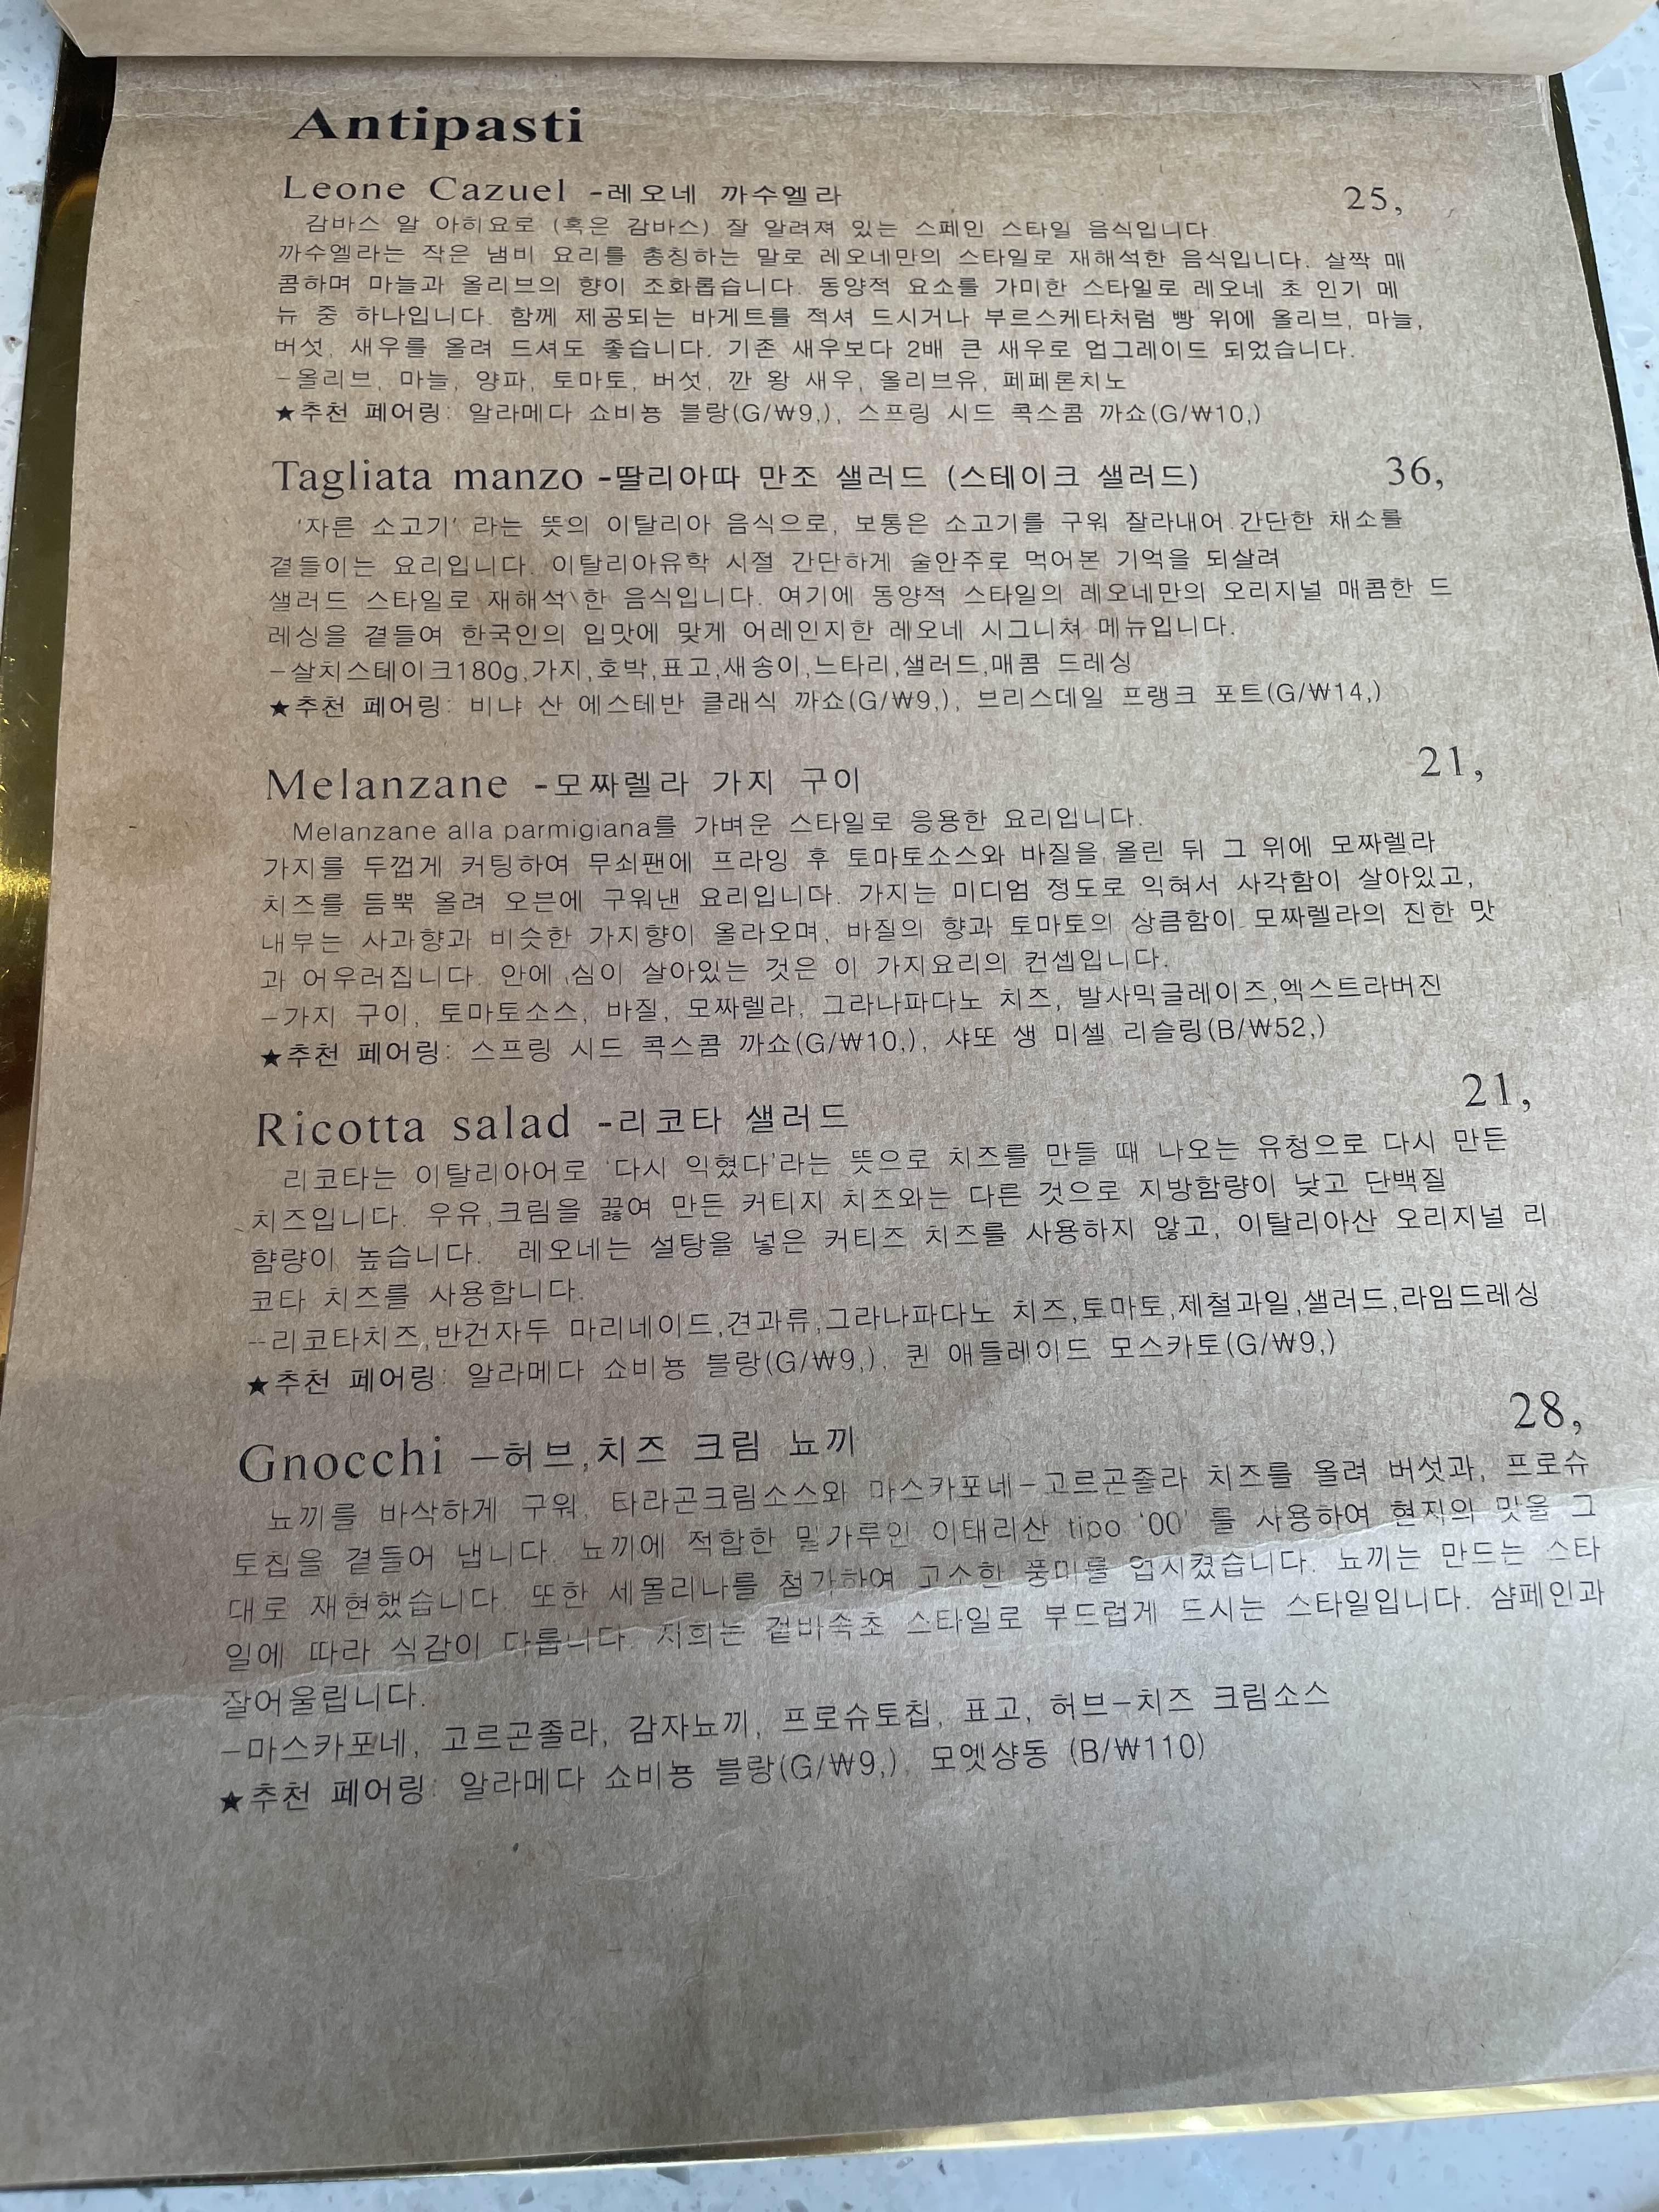 Antipasti
Leone Cazuel -레오네 까수엘라 25,
감바스 알 아히요로 (혹은 감바스) 잘 알려져 있는 스페인 스타일 음식입니다.
까수엘라는 작은 냄비 요리를 총칭하는 말로 레오네만의 스타일로 재해석한 음식입니다. 살짝 매
콤하며 마늘과 올리브의 향이 조화롭습니다. 동양적 요소를 가미한 스타일로 레오네 초 인기 메
뉴 중 하나입니다. 함께 제공되는 바게트를 적셔 드시거나 부르스케타처럼 빵 위에 올리브, 마늘,
버섯, 새우를 올려 드셔도 좋습니다. 기존 새우보다 2배 큰 새우로 업그레이드 되었습니다.
-올리브, 마늘, 양파, 토마토, 버섯, 깐 왕 새우, 올리브유, 페페론치노
★추천 페어링: 알라메다 쇼비뇽 블랑(G/₩9,), 스프링 시드 콕스콤 까쇼(G/₩10,)
Tagliata manzo -딸리아따 만조 샐러드 (스테이크 샐러드) 36,
'자른 소고기' 라는 뜻의 이탈리아 음식으로, 보통은 소고기를 구워 잘라내어 간단한 채소를
곁들이는 요리입니다. 이탈리아유학 시절 간단하게 술안주로 먹어본 기억을 되살려
샐러드 스타일로 재해석 한 음식입니다. 여기에 동양적 스타일의 레오네만의 오리지널 매콤한 드
레싱을 곁들여 한국인의 입맛에 맞게 어레인지한 레오네 시그니쳐 메뉴입니다.
-살치스테이크180g,가지,호박,표고,새송이,느타리,샐러드,매콤 드레싱
★추천 페어링: 비냐 산 에스테반 클래식 까쇼(G/₩9,), 브리스데일 프랭크 포트(G/₩14,)
Melanzane -모짜렐라 가지 구이 21,
Melanzane alla parmigiana를 가벼운 스타일로 응용한 요리입니다.
가지를 두껍게 커팅하여 무쇠팬에 프라잉 후 토마토소스와 바질을 올린 뒤 그 위에 모짜렐라
치즈를 듬뿍 올려 오븐에 구워낸 요리입니다. 가지는 미디엄 정도로 익혀서 사각함이 살아있고,
내부는 사과향과 비슷한 가지향이 올라오며, 바질의 향과 토마토의 상큼함이 모짜렐라의 진한 맛
과 어우러집니다. 안에 심이 살아있는 것은 이 가지요리의 컨셉입니다.
-가지 구이, 토마토소스, 바질, 모짜렐라, 그라나파다노 치즈, 발사믹글레이즈,엑스트라버진
★추천 페어링: 스프링 시드 콕스콤 까쇼(G/₩10,), 샤또 생 미셸 리슬링(B/₩52,)
Ricotta salad -리코타 샐러드 21,
리코타는 이탈리아어로 '다시 익혔다'라는 뜻으로 치즈를 만들 때 나오는 유청으로 다시 만든
치즈입니다. 우유,크림을 끓여 만든 커티지 치즈와는 다른 것으로 지방함량이 낮고 단백질
햠량이 높습니다. 레오네는 설탕을 넣은 커티즈 치즈를 사용하지 않고, 이탈리아산 오리지널 리
코타 치즈를 사용합니다.
--리코타치즈,반건자두 마리네이드,견과류,그라나파다노 치즈,토마토,제철과일,샐러드,라임드레싱
★추천 페어링: 알라메다 쇼비뇽 블랑(G/₩9,), 퀸 애들레이드 모스카토(G/₩9,)
Gnocchi -허브,치즈 크림 뇨끼 28,
뇨끼를 바삭하게 구워, 타라곤크림소스와 마스카포네-고르곤졸라 치즈를 올려 버섯과, 프로슈
토칩을 곁들어 냅니다. 뇨끼에 적합한 밀가루인 이태리산 tipo '00' 를 사용하여 현지의 맛을 그
대로 재현했습니다. 또한 세몰리나를 첨가하여 고소한 풍미를 업시켰습니다. 뇨끼는 만드는 스타
일에 따라 식감이 다릅니다. 저희는 겉바속초 스타일로 부드럽게 드시는 스타일입니다. 샴페인과
잘어울립니다.
-마스카포네, 고르곤졸라, 감자뇨끼, 프로슈토칩, 표고, 허브-치즈 크림소스
★추천 페어링: 알라메다 쇼비뇽 블랑(G/₩9,), 모엣샹동 (B/₩110)